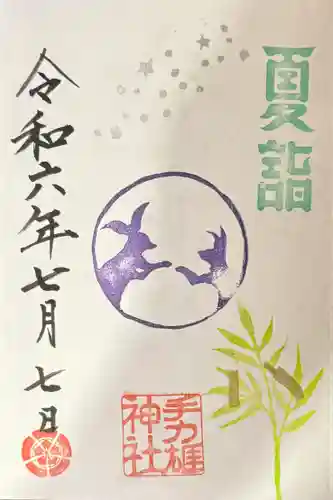 夏詣
手力雄
神社
令和六年七月七日